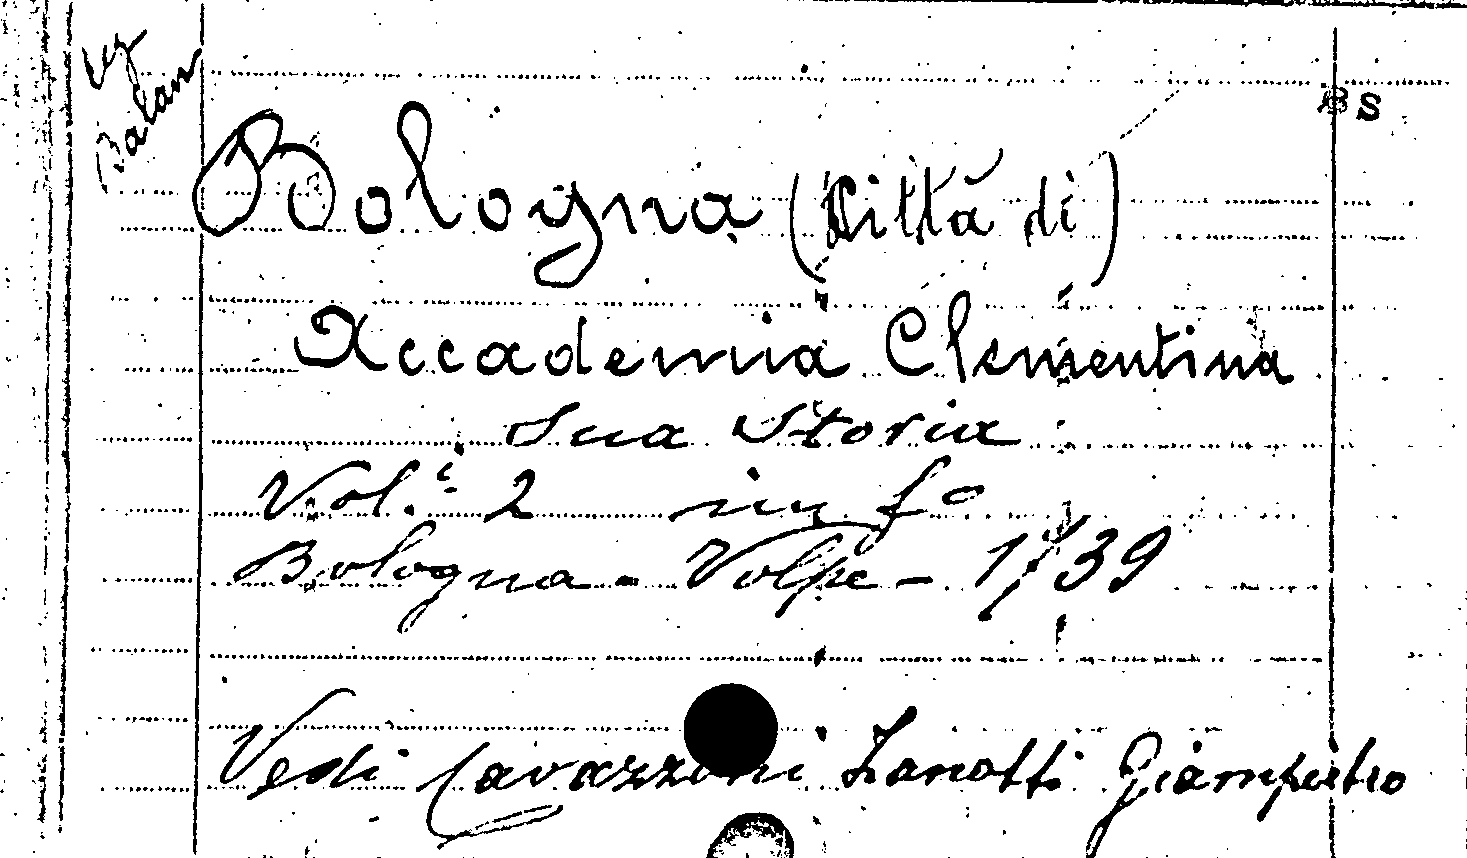 Leg
Balan
BS
Bologna (Città di)
Accademia Clementina
Sua Storia
Vol.i 2 in fo
Bologna - Volpe - 1739
Vedi Cavazzoni Zanotti Giampietro